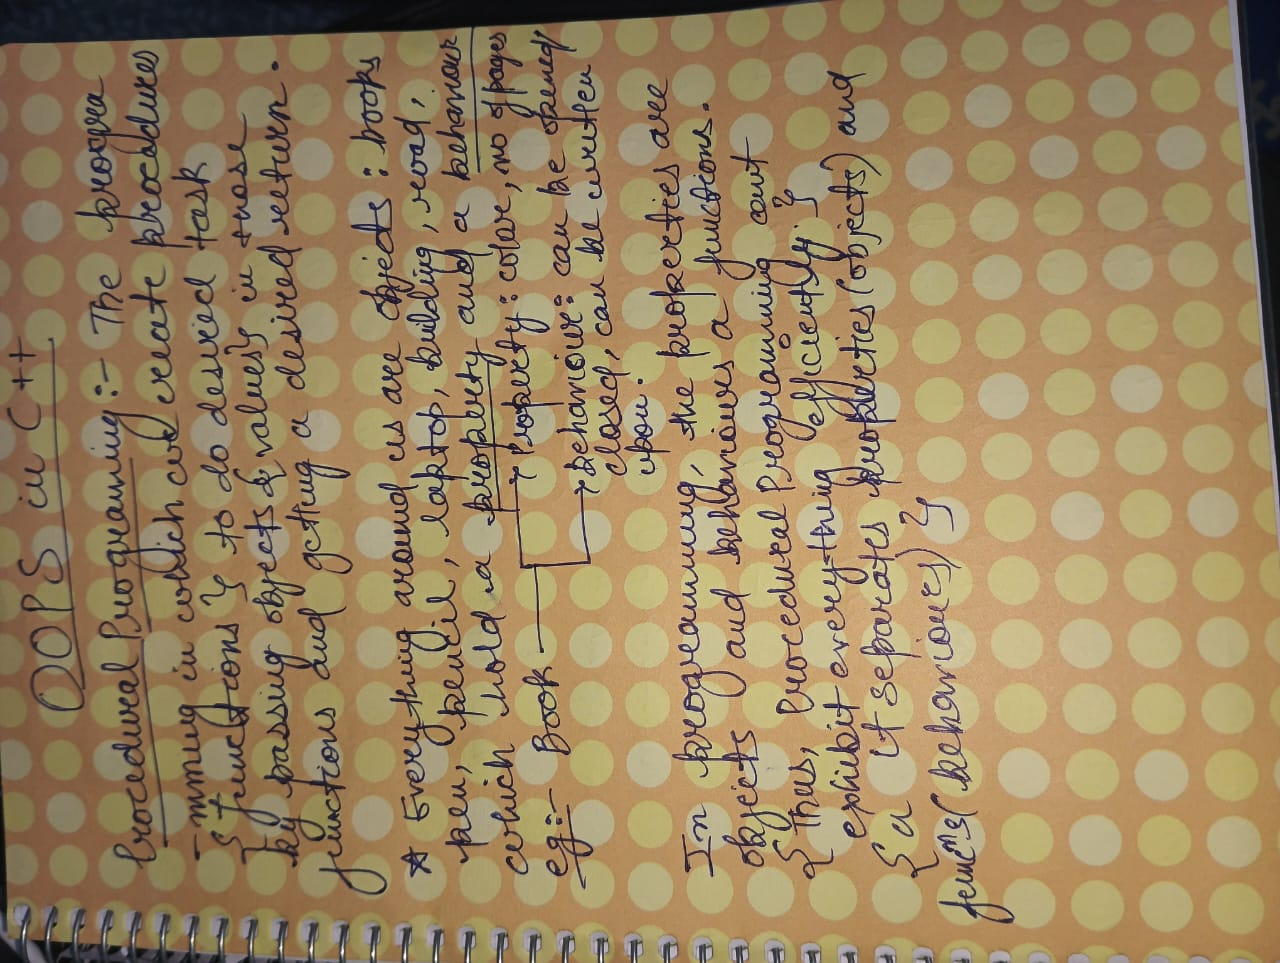 OOPS in C++
Procedural Programing :- The progra
-mming in which we create procedures
{functions} to do desired task
by passing objects {values} in those
functions and getting a desired return.
★ Everything around us are objects : books
pen, pencil, laptop, building, road,
which hold a property and a behaviour
eg:- Book → Property: color, no of pages
→ Behaviour: can be opened,
closed, can be written
upon.
In programming, the properties are
objects and behaviours a functions.
{ Thus, Procedural Programming cant
exhibit everything efficiently }
{ a it separates properties (objects) and
funcns (behaviours) }